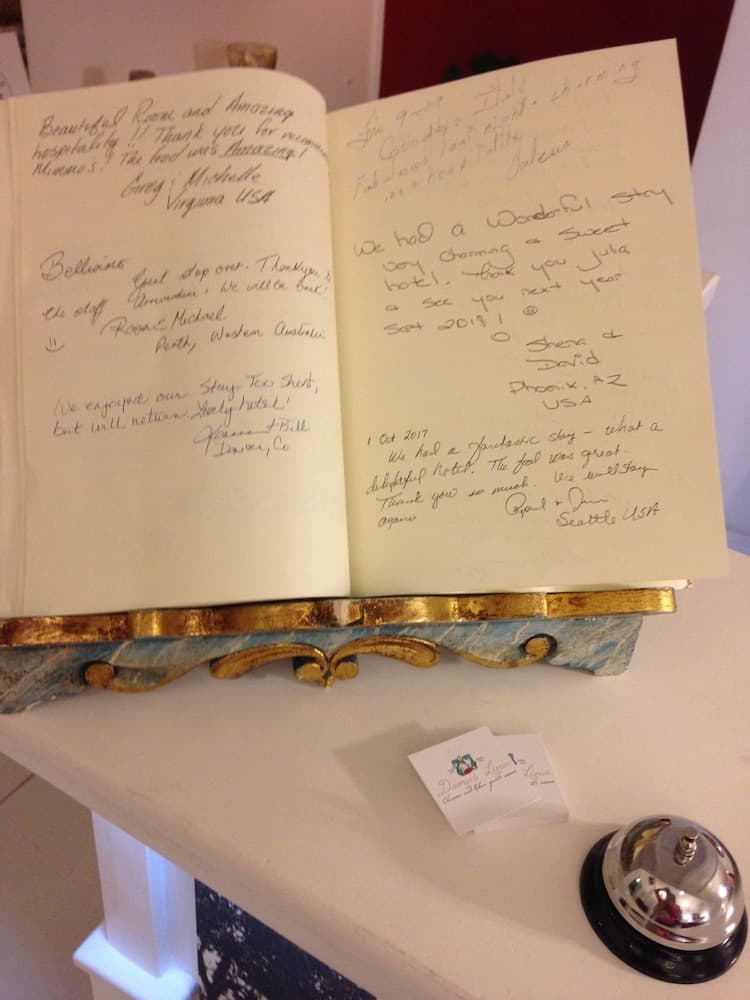 Beautiful Room and Amazing
hospitality!! Thank you for
Mimmos! The food was Amazing!
Greg & Michelle
Virginia USA
Bellissimo
Great stop over. Thankyou to
the staff. We will be back!
Michael
Perth, Western Australia
We enjoyed our stay. Too short,
but will return. Lovely hotel!
& Bill
Denver, Co
Fabulous last night - charming
We had a Wonderful Stay
very charming & Sweet
hotel. Thank you Julia
& See you next year
Sept 2018!
Shera &
David
Phoenix, AZ
USA
1 Oct 2017
We had a fantastic stay - what a
delightful hotel. The food was great.
Thank you so much. We will stay
again
Seattle USA
Domus